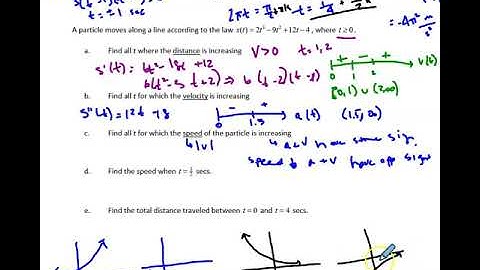 t = ± 1 sec
-4π² m/s
A particle moves along a line according to the law s(t) = 2t³ − 9t² + 12t − 4 , where t ≥ 0 .
a. Find all t where the distance is increasing V > 0 t = 1, 2
s'(t) = 6t² − 18t + 12
6(t² − 3t + 2) ⇒ 6(t−2)(t−1)
+ − + V(t)
0 1 2
[0, 1) ∪ (2, ∞)
b. Find all t for which the velocity is increasing
s''(t) = 12t − 18
− + a(t) (1.5, ∞)
0 1.5
c. Find all t for which the speed of the particle is increasing
↳ |v|
↳ a + v have same sign
speed ↓ a + v have opp sign
d. Find the speed when t = ½ secs.
e. Find the total distance traveled between t = 0 and t = 4 secs.